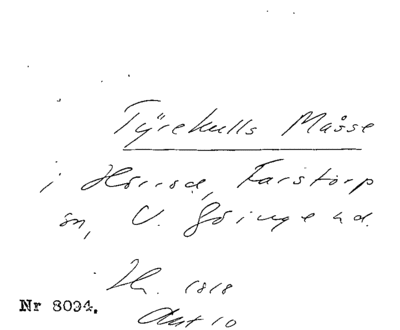 Tyrekulls Måsse
i Hörröd, Farstorp
sn, V. Göinge hd.
H. 1818
Akt 10
Nr 8094.